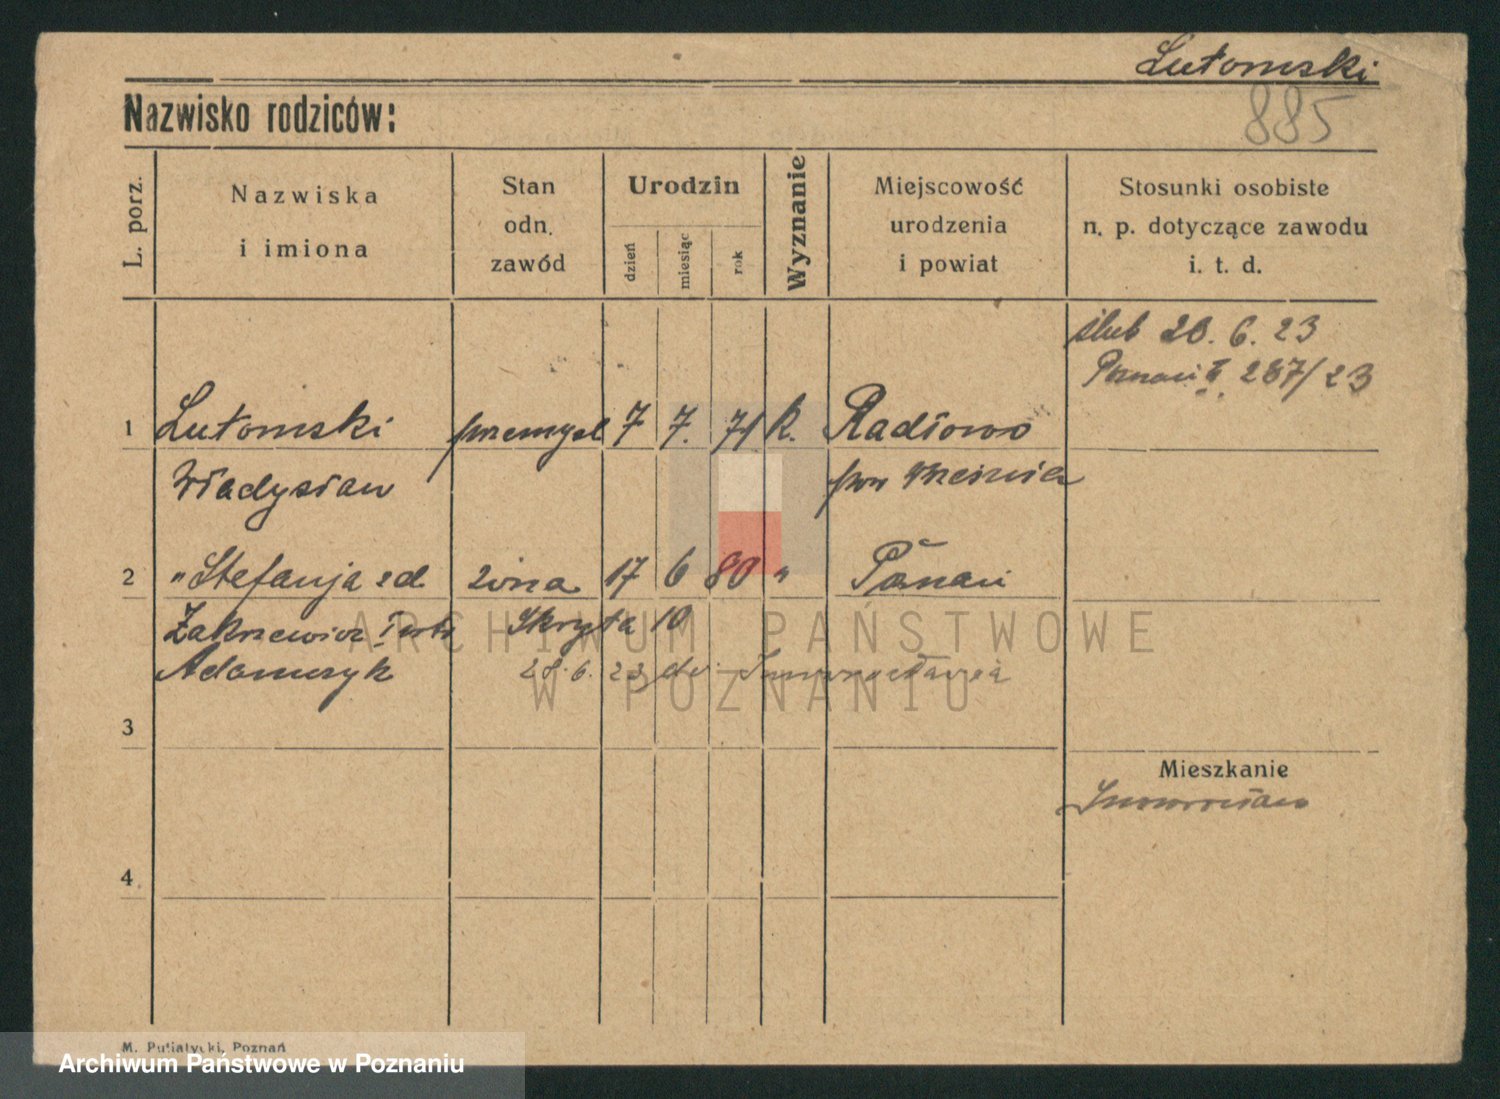 Lutomski
885
Nazwisko rodziców:
L. porz.
Nazwiska
i imiona
Stan
odn.
zawód
Urodzin
dzień
miesiąc
rok
Wyznanie
Miejscowość
urodzenia
i powiat
Stosunki osobiste
n. p. dotyczące zawodu
i. t. d.
ślub 20. 6. 23
Poznań II. 287/23
1 Lutomski przemysł 7 7. 71 k. Radłowo
Władysław pow Września
2 " Stefanja zd żona 17 6 80 " Poznań
Zakrzewicz Skryta 10
Adamczyk 28. 6. 23 do Inowrocławia
3
Mieszkanie
Inowrocław
4
ARCHIWUM PAŃSTWOWE
W POZNANIU
M. Putiatycki, Poznań
Archiwum Państwowe w Poznaniu